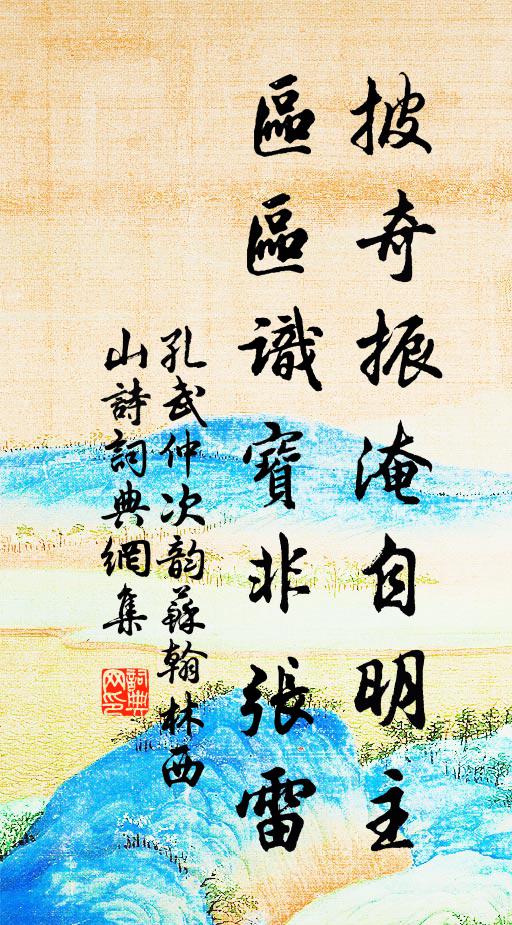 披奇振淹自明主
區區識寶非張雷
孔武仲次韵蘇翰林西
山詩詞典網集
詞典
网印